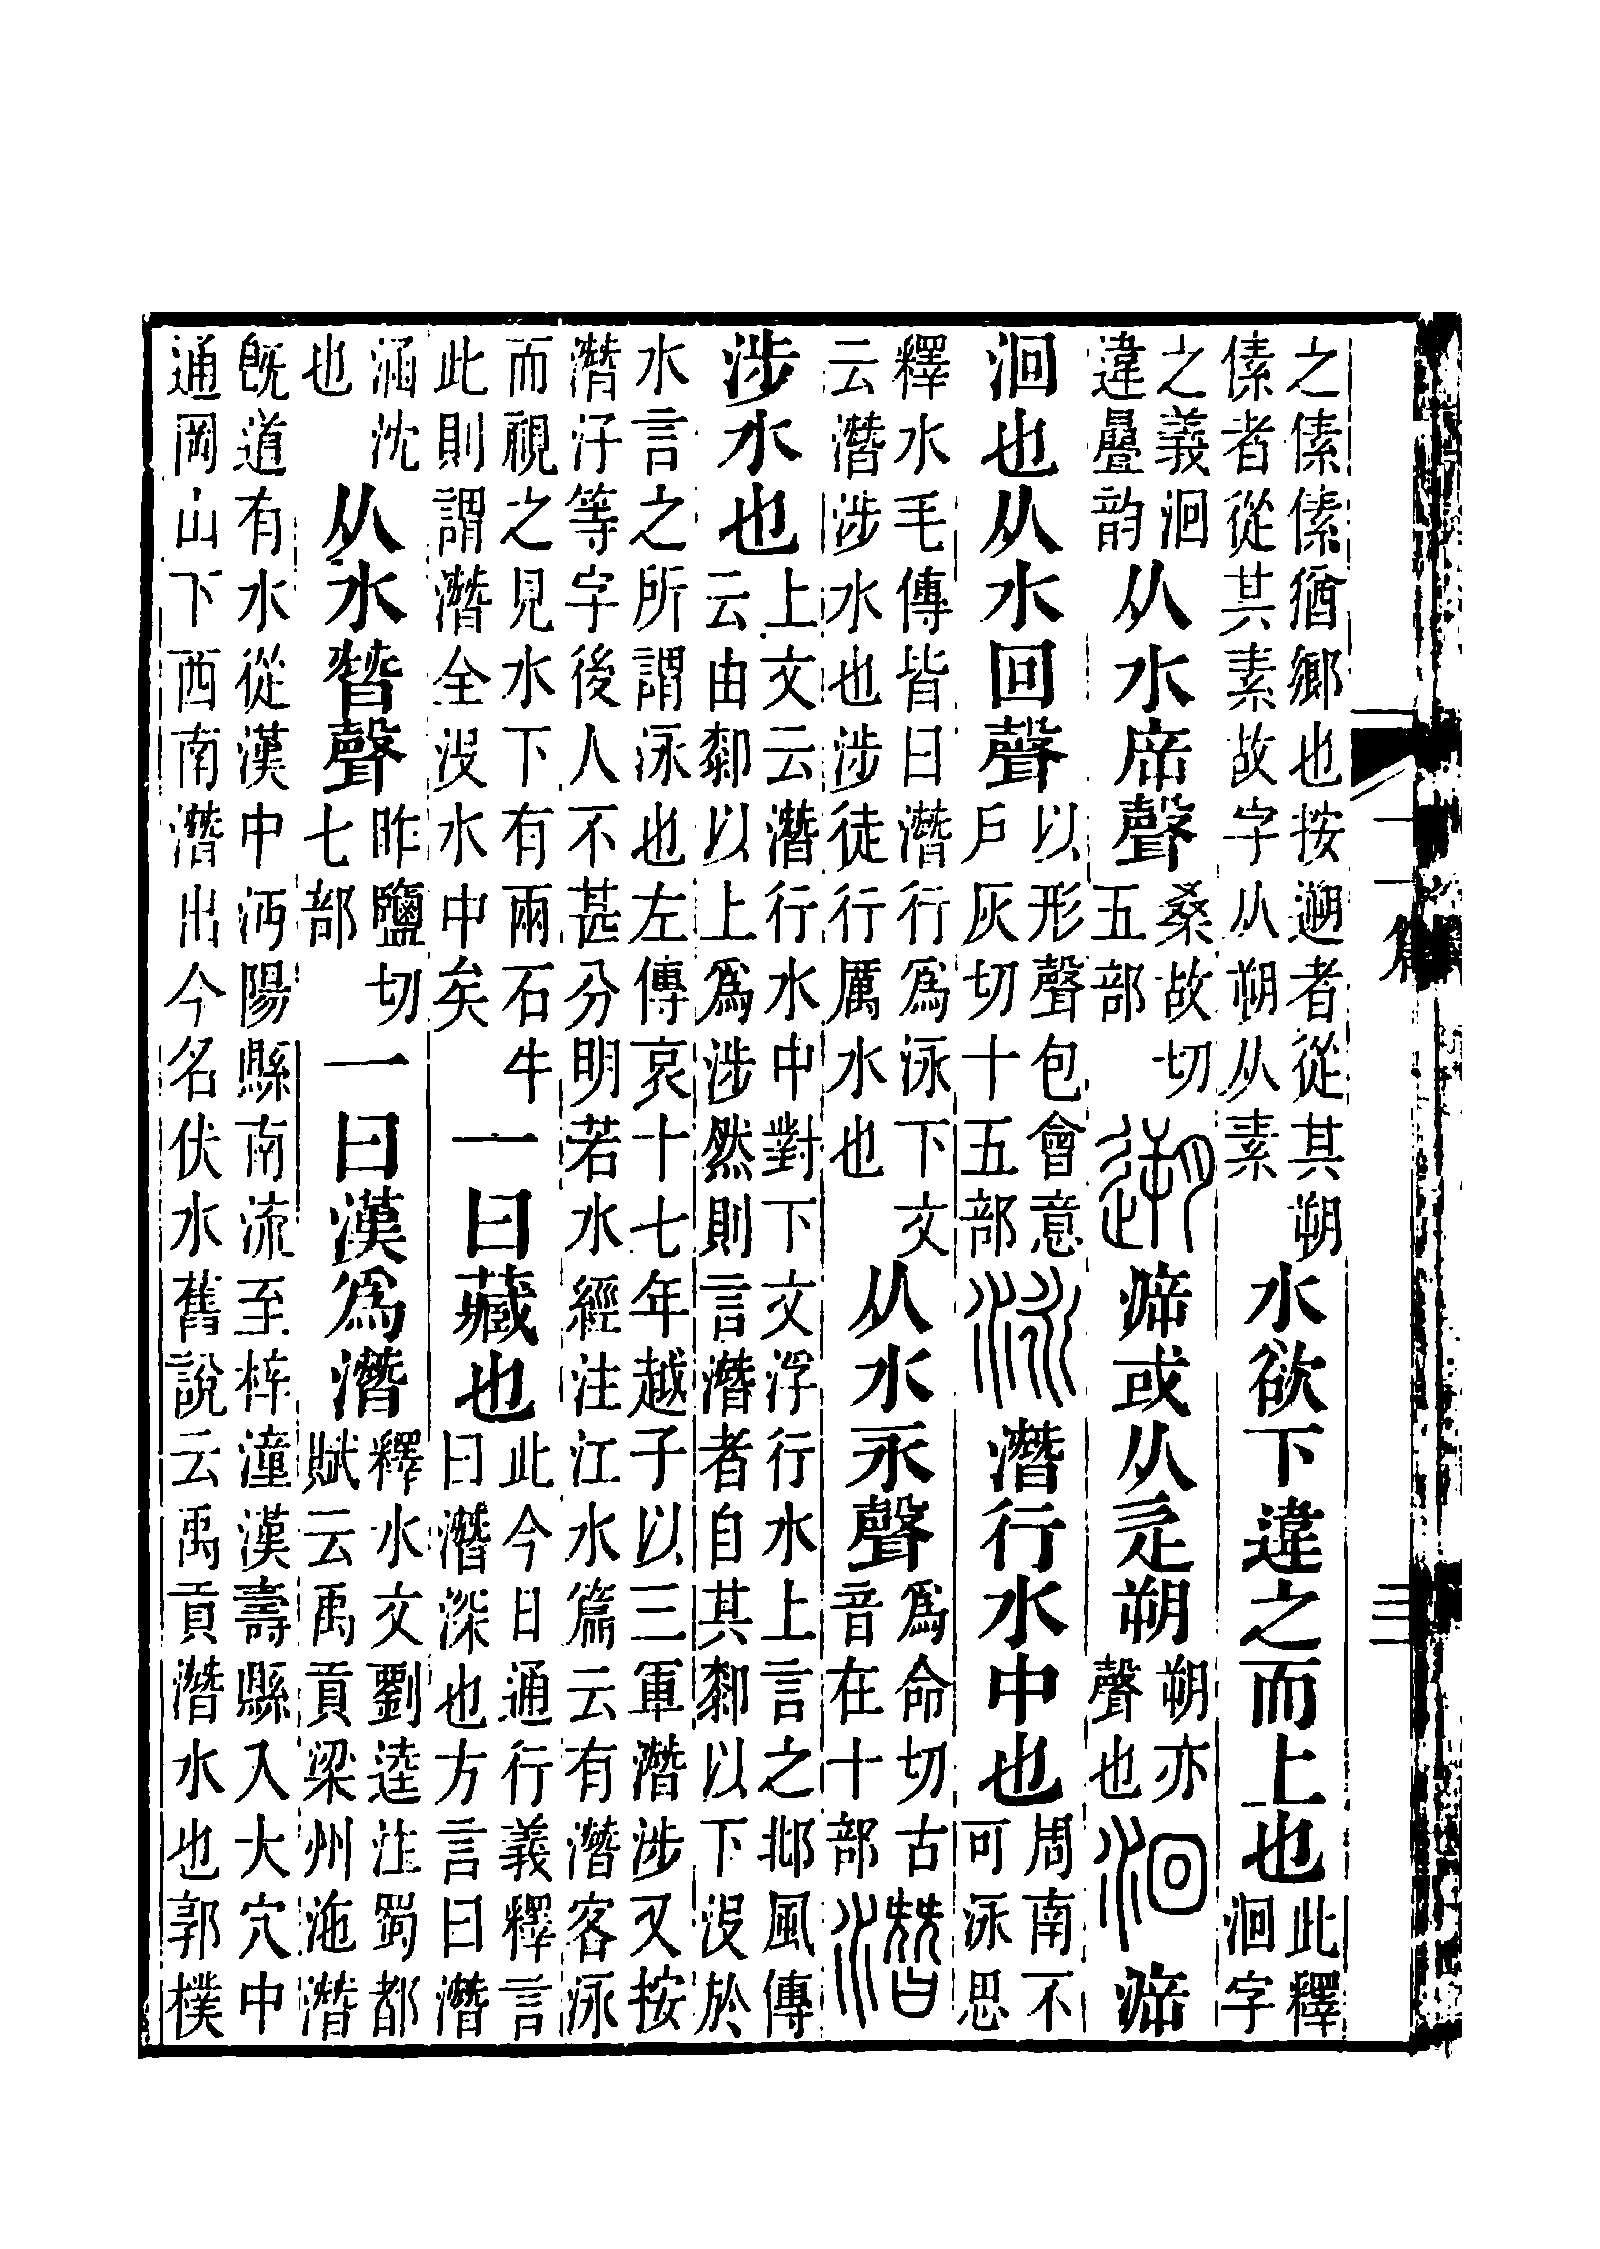 之傃傃猶鄉也按遡者從其朔
傃者從其素故字从朔从素
水欲下違之而上也
此釋
洄字
之義洄
違疊韵
从水㡿聲
桑故切
五部
遡
㴑或从辵朔
朔亦
聲也
洄
㴑
洄也从水回聲
以形聲包會意
戶灰切十五部
泳
潛行水中也
周南不
可泳思
釋水毛傳皆曰潛行爲泳下文
云潛涉水也涉徒行厲水也
从水永聲
爲命切古
音在十部
潛
涉水也
上文云潛行水中對下文浮行水上言之邶風傳
云由厀以上爲涉然則言潛者自其厀以下没於
水言之所謂泳也左傳哀十七年越子以三軍潛涉又按
潛汓等字後人不甚分明若水經注江水篇云有潛客泳
而視之見水下有兩石牛
此則謂潛全没水中矣
一曰藏也
此今日通行義釋言
曰潛深也方言曰潛
涵沈
也
从水朁聲
昨鹽切
七部
一曰漢爲潛
釋水文劉逵注蜀都
賦云禹貢梁州沲潛
旣道有水從漢中沔陽縣南流至梓潼漢壽縣入大穴中
通岡山下西南潛出今名伏水舊說云禹貢潛水也郭樸